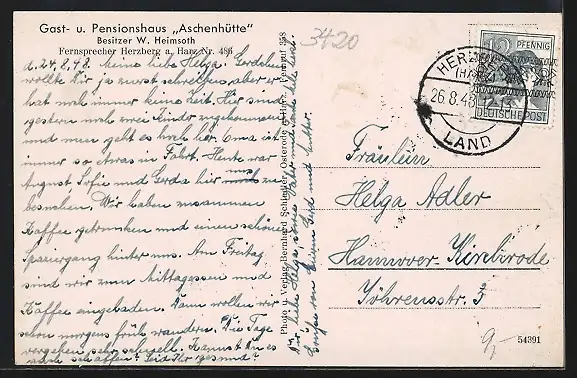 Gast- u. Pensionshaus „Aschenhütte"
Besitzer W. Heimsoth
Fernsprecher Herzberg a. Harz Nr. 486
d. 24.8.48. Meine liebe Helga, Gerdchen
wollte Dir ja zuerst schreiben, aber er
hat mal immer keine Zeit. Hier sind
gestern noch zwei Kinder zugekommen
und nun geht es hoch her. Oma ist
immer so etwas in Fahrt. Heute war
August, Sofie und Gerda hier uns zu
besuchen. Wir haben zusammen
Kaffee getrunken und einen schönen
Spaziergang hinter uns. Am Freitag
sind wir zum Mittagessen und
Kaffee eingeladen. Dann wollen wir
schon morgens früh wandern. Die Tage
vergehen sehr schnell. Kannst Du es
noch schaffen? Seid Ihr gesund?
Dir, liebe Helga, sowie Vater und herzliche
Grüsse von Deinem Gerd und Mutter.
Photo u. Verlag Bernhard Schlenker, Osterode a. Harz, Fernruf 358
3420
12 PFENNIG
DEUTSCHE POST
HERZBERG
(HARZ)
26.8.48.
LAND
Fräulein
Helga Adler
Hannover-Kirchrode
Jöhrensstr. 3
54391